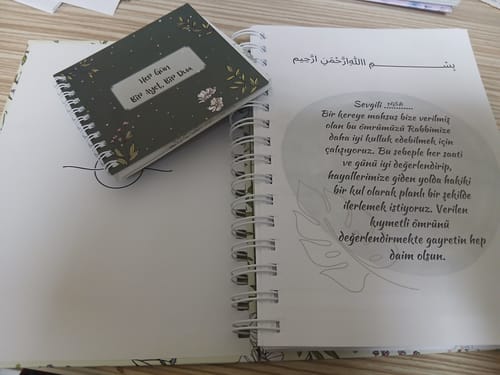 Her Gün
Bir Ayet, Bir Dua
بِسْــــمِ اللهِ الرَّحْمَنِ الرَّحِيمِ
Sevgili
Bir kereye mahsus bize verilmiş
olan bu ömrümüzü Rabbimize
daha iyi kulluk edebilmek için
çalışıyoruz. Bu sebeple her saati
ve günü iyi değerlendirip,
hayallerimize giden yolda hakiki
bir kul olarak planlı bir şekilde
ilerlemek istiyoruz. Verilen
kıymetli ömrünü
değerlendirmekte gayretin hep
daim olsun.